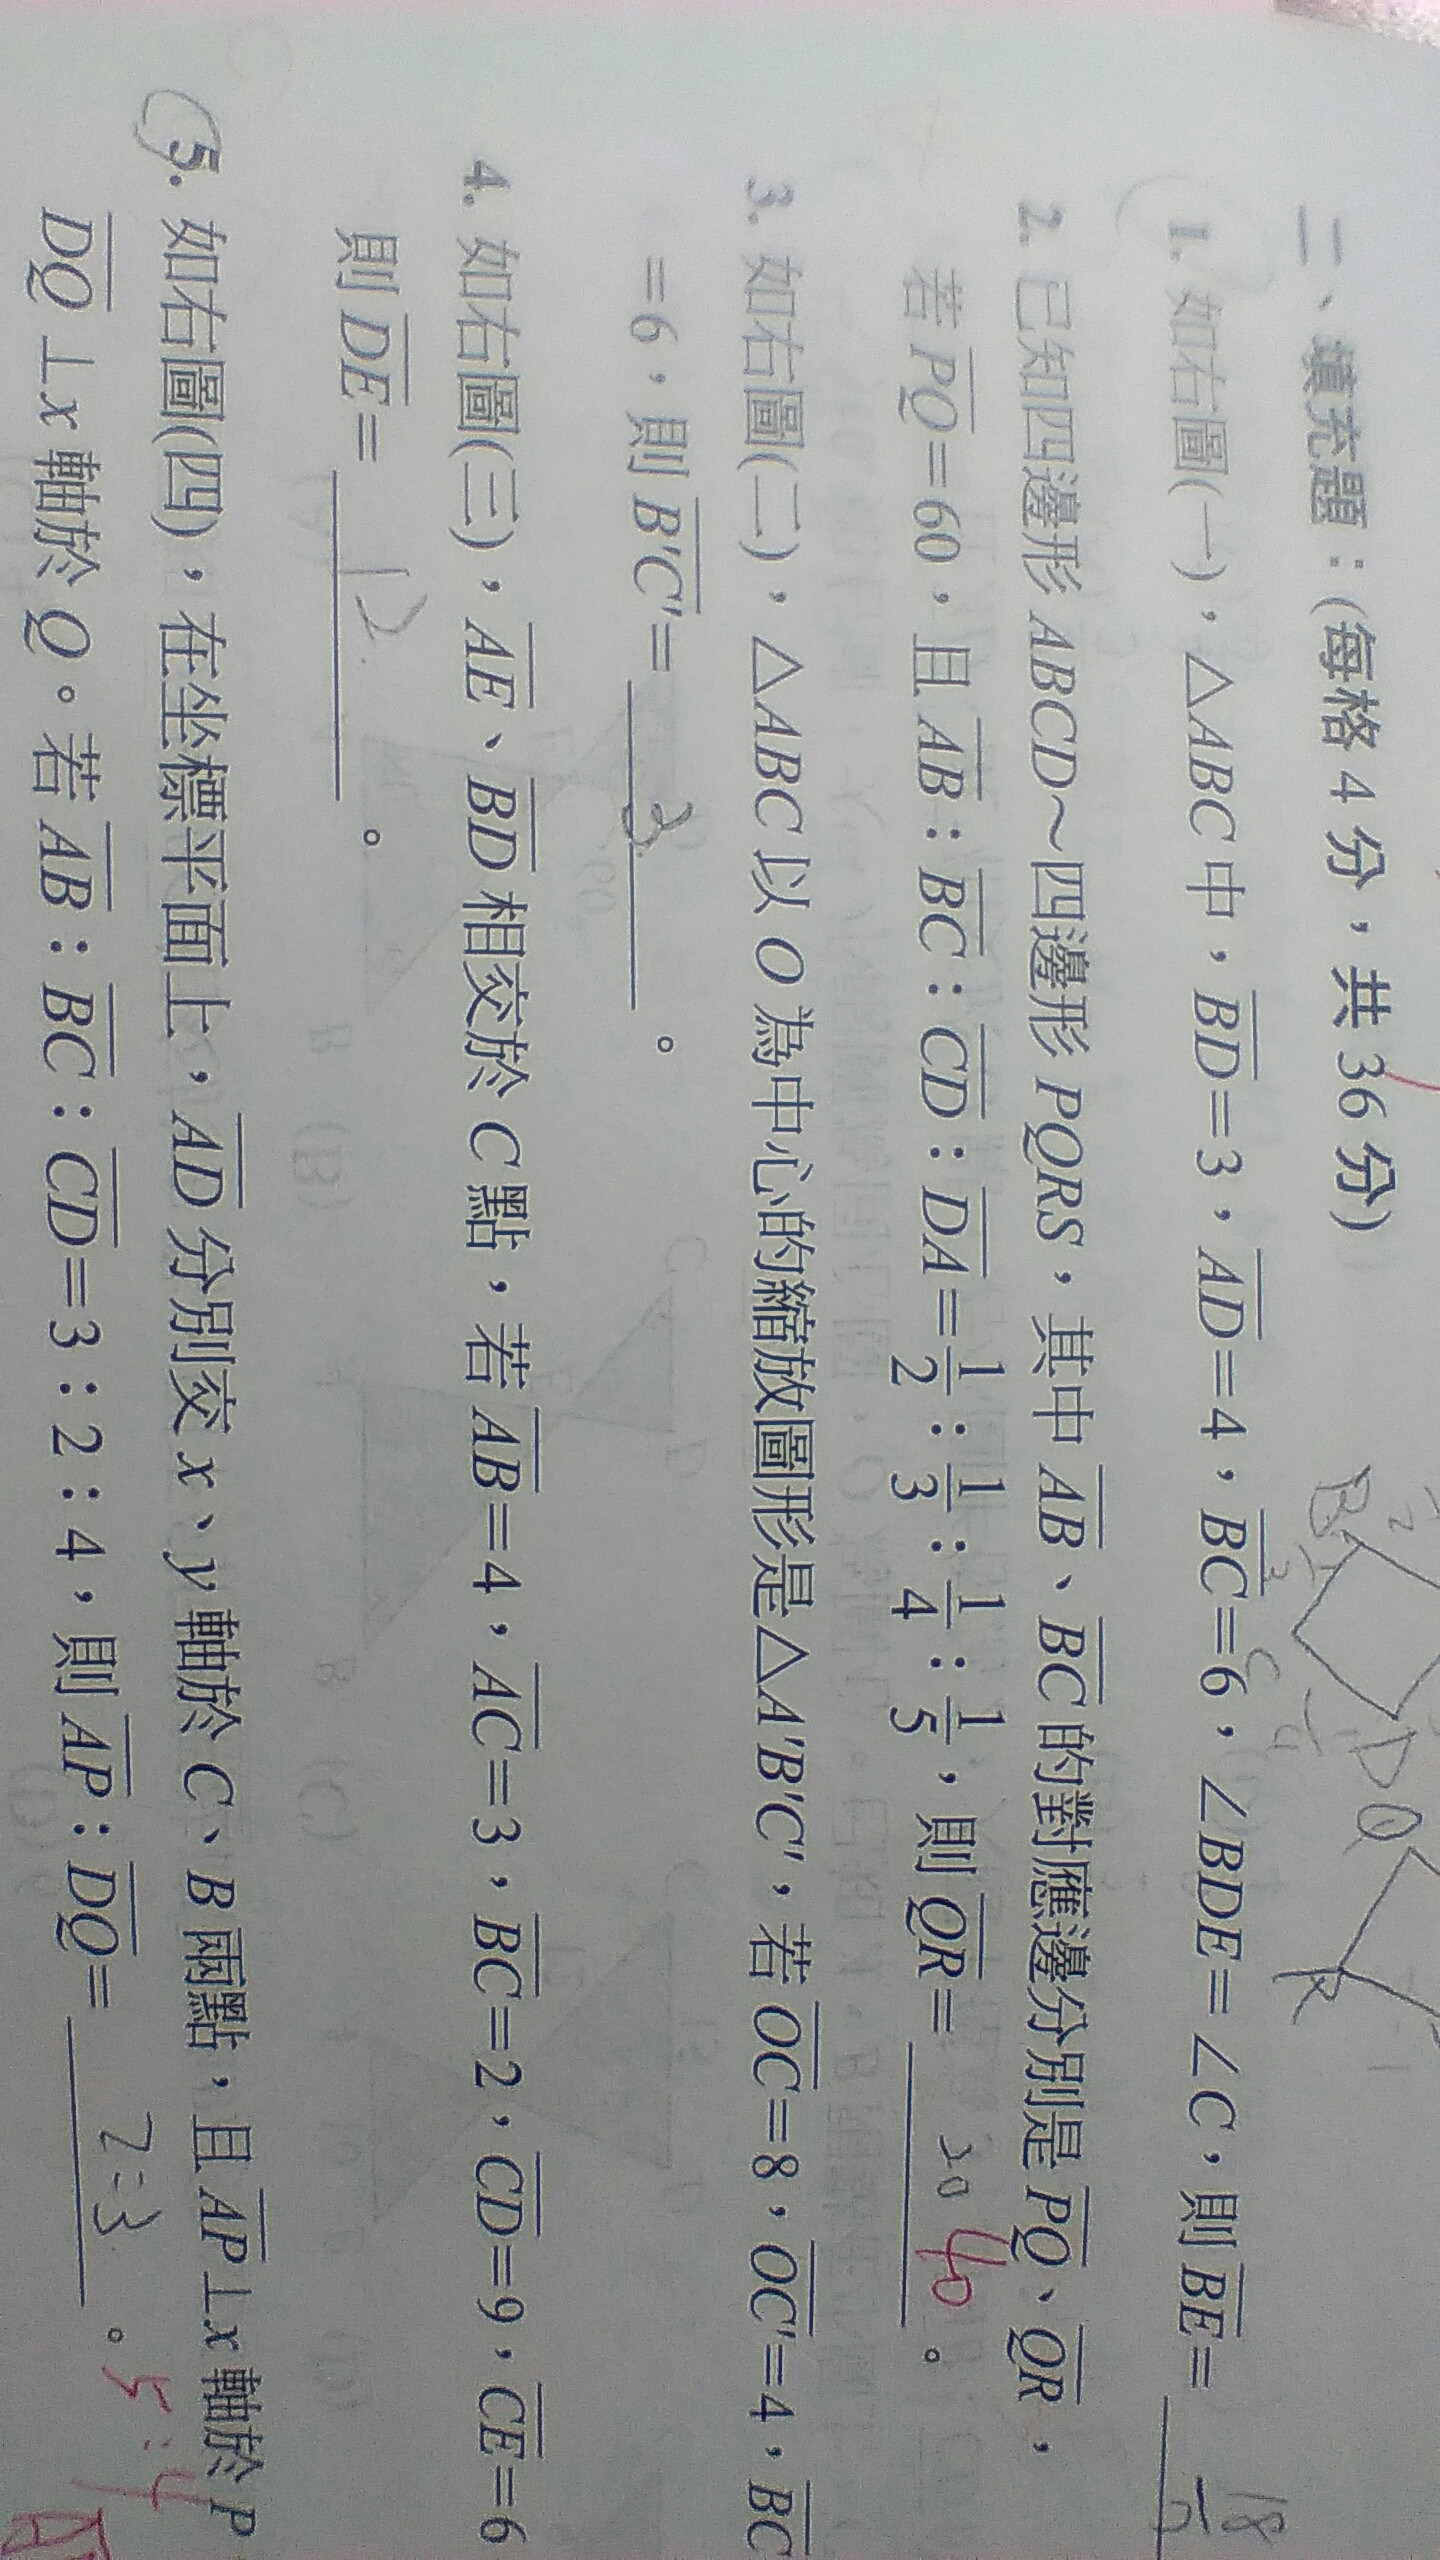 二、填充題：(每格 4 分，共 36 分)
1. 如右圖(一)，△ABC 中，BD=3，AD=4，BC=6，∠BDE=∠C，則 BE=
2. 已知四邊形 ABCD～四邊形 PQRS，其中 AB、BC 的對應邊分別是 PQ、QR，
若 PQ=60，且 AB：BC：CD：DA=1/2：1/3：1/4：1/5，則 QR= 20 40 。
3. 如右圖(二)，△ABC 以 O 為中心的縮放圖形是△A'B'C'，若 OC=8，OC'=4，BC
=6，則 B'C'= 3 。
4. 如右圖(三)，AE、BD 相交於 C 點，若 AB=4，AC=3，BC=2，CD=9，CE=6
則 DE= 12 。
5. 如右圖(四)，在坐標平面上，AD 分別交 x、y 軸於 C、B 兩點，且 AP⊥x 軸於 P
DQ⊥x 軸於 Q。若 AB：BC：CD=3：2：4，則 AP：DQ= 7:3 。 5:4
B
D
Q
R